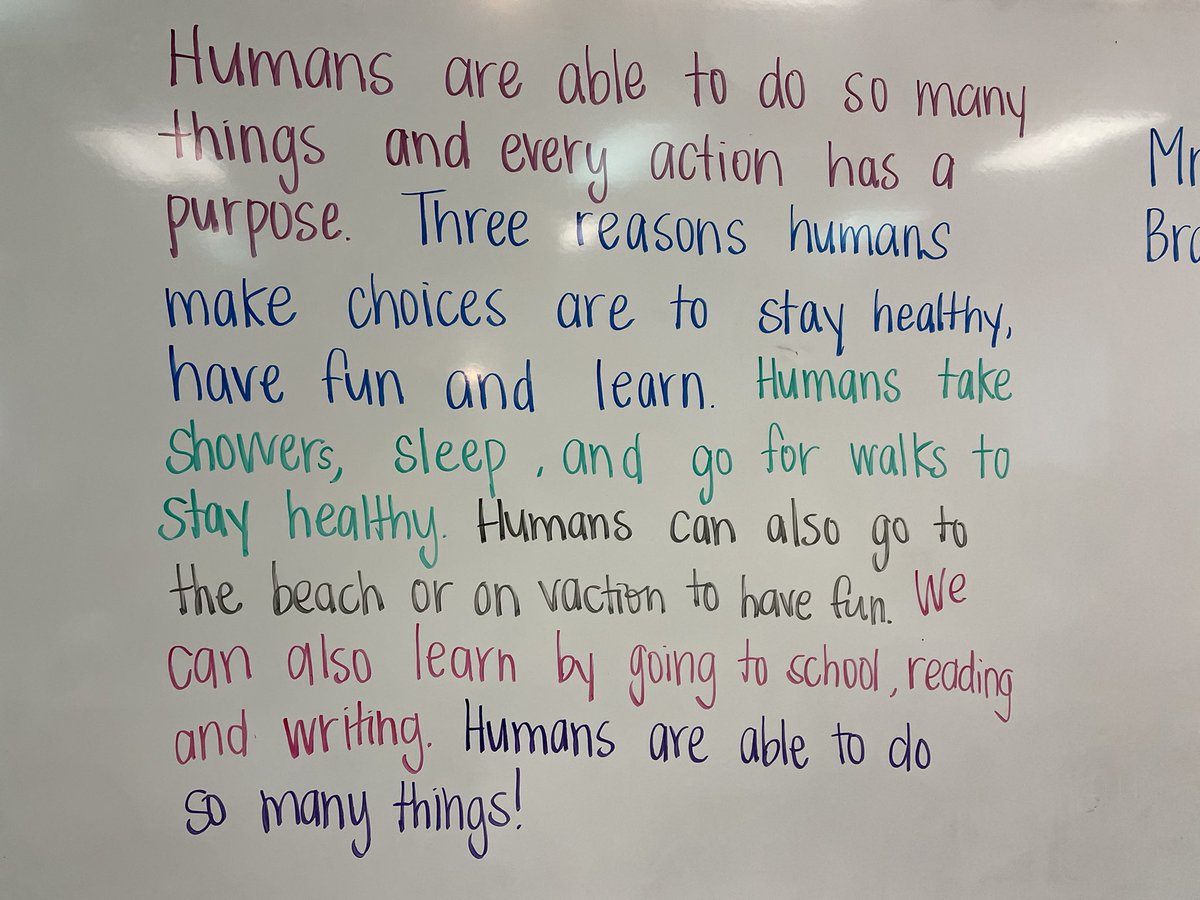 Humans are able to do so many
things and every action has a
purpose. Three reasons humans
make choices are to stay healthy,
have fun and learn. Humans take
showers, sleep, and go for walks to
stay healthy. Humans can also go to
the beach or on vaction to have fun. We
can also learn by going to school, reading
and writing. Humans are able to do
so many things!